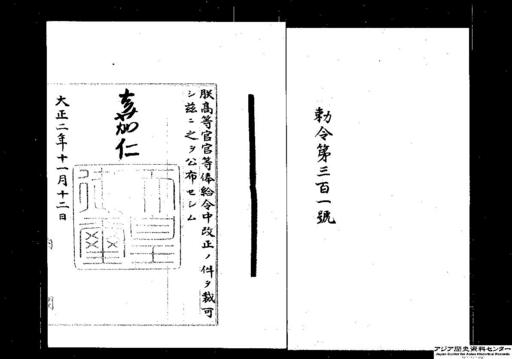 勅令第三百一號
朕高等官官等俸給令中改正ノ件ヲ裁可
シ茲ニ之ヲ公布セシム
嘉仁
大正二年十一月十二日
アジア歴史資料センター
Japan Center for Asian Historical Records